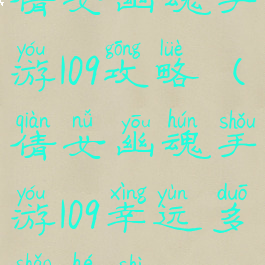 倩女幽魂手
yóu gōng lüè
游109攻略(
qiàn nǚ yōu hún shǒu
倩女幽魂手
yóu xìng yùn duō
游109幸运多
shǎo hé shì